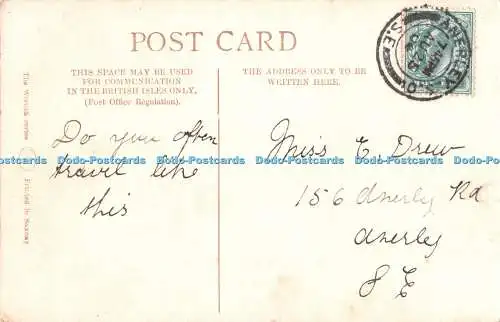 POST CARD
THIS SPACE MAY BE USED
FOR COMMUNICATION
IN THE BRITISH ISLES ONLY.
(Post Office Regulation).
THE ADDRESS ONLY TO BE
WRITTEN HERE.
Do you often
travel like
this
Miss E. Drew
156 Anerley Rd
Anerley
S E
ANERLEY
S.E.
Printed in Saxony
Dodo-Postcards Dodo-Postcards Dodo-Postcards Dodo-Postcards Dodo-Postcards Dodo-Postcards